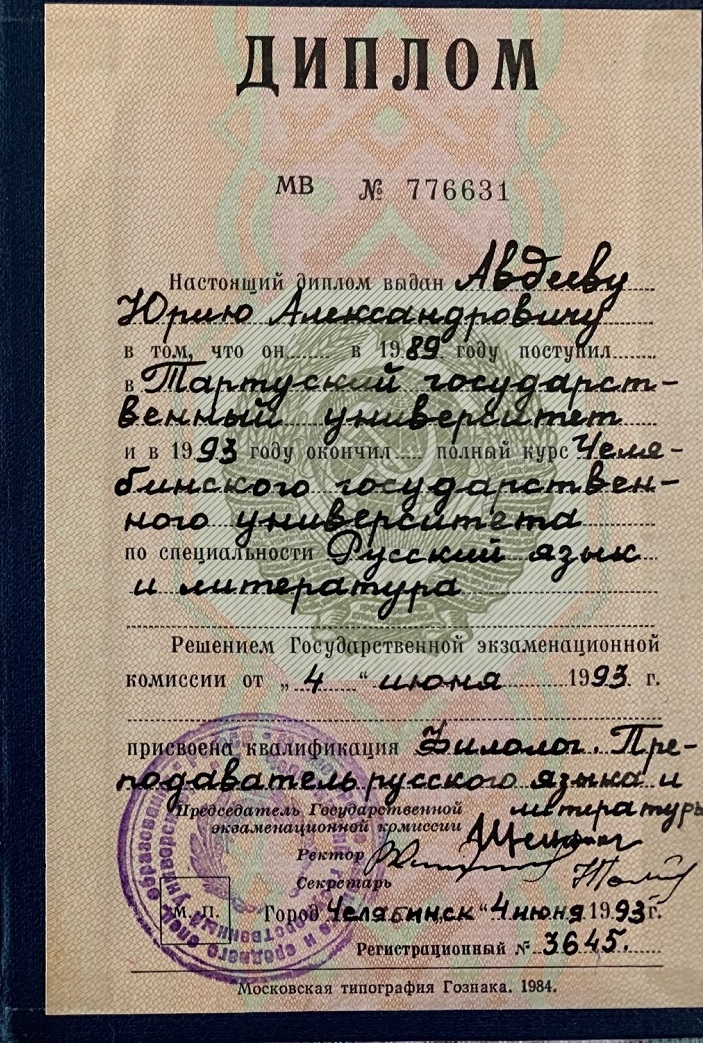 ДИПЛОМ
МВ № 776631
Настоящий диплом выдан Авдееву
Юрию Александровичу
в том, что он в 1989 году поступил
в Тартуский государст-
венный университет
и в 1993 году окончил полный курс Челя-
бинского государствен-
ного университета
по специальности Русский язык
и литература
Решением Государственной экзаменационной
комиссии от „4“ июня 1993 г.
присвоена квалификация Филолог. Пре-
подаватель русского языка и
литературы
Председатель Государственной
экзаменационной комиссии
Ректор
Секретарь
М. П.
Город Челябинск „4 июня 1993 г.
Регистрационный № 3645.
Московская типография Гознака. 1984.